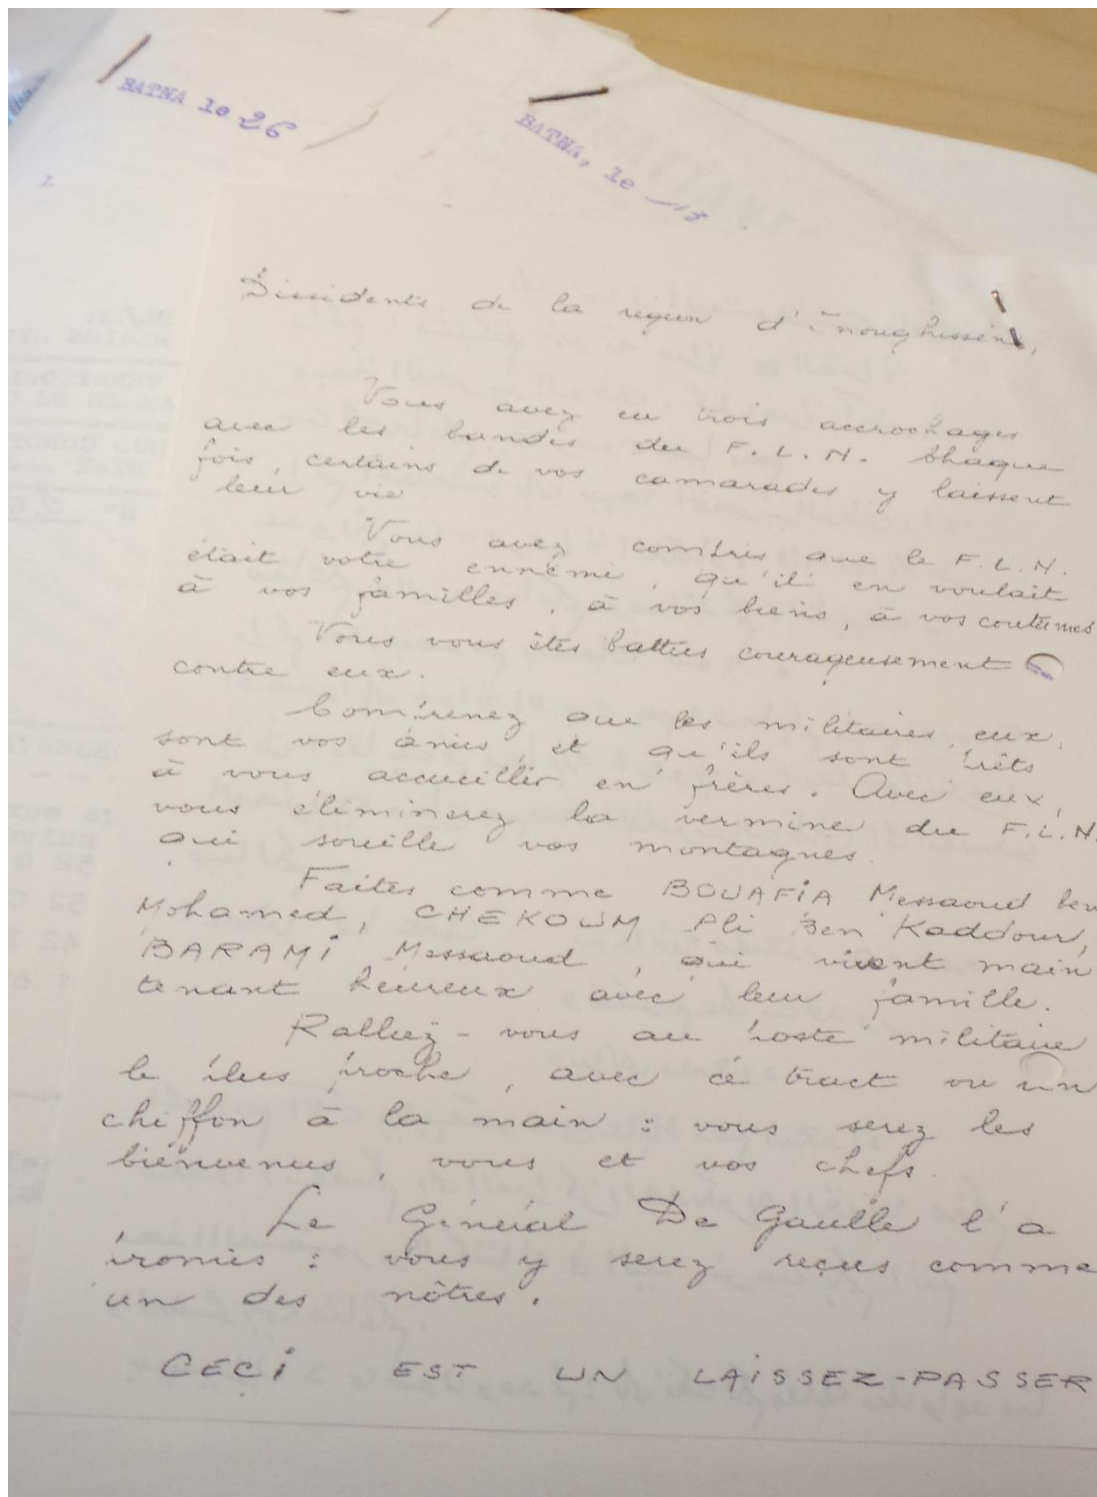 BATNA le 26
BATNA, le 13
Dissidents de la region d'Inoughissène,
Vous avez eu trois accrochages
avec les bandes du F.L.N. Chaque
fois, certains de vos camarades y laissent
leur vie
Vous avez compris que le F.L.N.
était votre ennemi, qu'il en voulait
à vos familles, à vos biens, à vos coutumes
Vous vous êtes battus courageusement
contre eux.
Comprenez que les militaires, eux,
sont vos amis, et qu'ils sont prêts
à vous accueillir en frères. Avec eux,
vous éliminerez la vermine du F.L.N.
qui souille vos montagnes.
Faites comme BOUAFIA Messaoud ben
Mohamed, CHEKOUM Ali Ben Kaddour,
BARAMI Messaoud, qui vivent main
tenant heureux avec leur famille.
Ralliez-vous au poste militaire
le plus proche, avec ce tract ou un
chiffon à la main : vous serez les
bienvenus, vous et vos chefs.
Le Général De Gaulle l'a
promis : vous y serez reçus comme
un des nôtres.
CECI EST UN LAISSEZ-PASSER